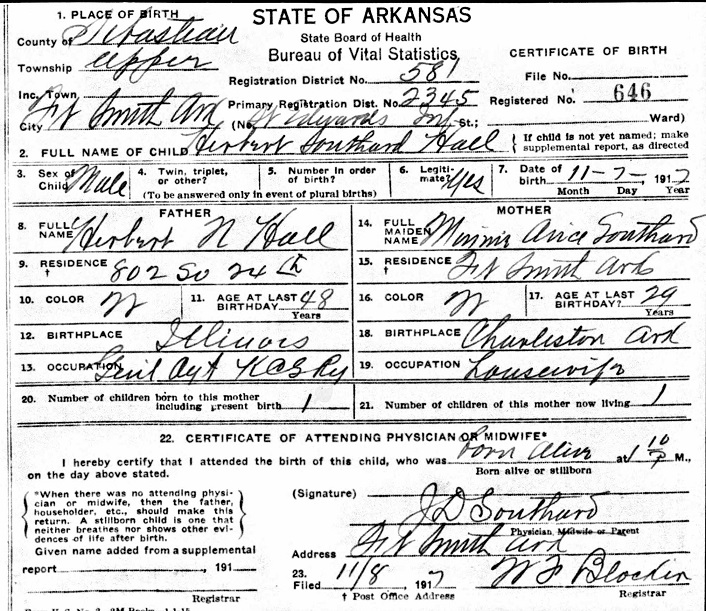 1. PLACE OF BIRTH
STATE OF ARKANSAS
State Board of Health
Bureau of Vital Statistics
CERTIFICATE OF BIRTH
County of Sebastian
Township Upper
Registration District No. 581
File No.
Inc. Town
Primary Registration Dist. No. 2345
Registered No. 646
City Ft Smith Ark (No. St Edwards Inf St.; Ward)
2. FULL NAME OF CHILD Herbert Southard Hall
{ If child is not yet named; make
supplemental report, as directed
3. Sex of Child Male
4. Twin, triplet, or other?
5. Number in order of birth?
(To be answered only in event of plural births)
6. Legiti- mate? Yes
7. Date of birth 11-7-, 1917
Month Day Year
FATHER
8. FULL NAME Herbert N Hall
9. RESIDENCE † 802 So 24th
10. COLOR W
11. AGE AT LAST BIRTHDAY 48
Years
12. BIRTHPLACE Illinois
13. OCCUPATION Genl Agt KCS Ry
MOTHER
14. FULL MAIDEN NAME Minnie Southard
15. RESIDENCE † Ft Smith Ark
16. COLOR W
17. AGE AT LAST BIRTHDAY? 29
Years
18. BIRTHPLACE Charleston Ark
19. OCCUPATION Housewife
20. Number of children born to this mother including present birth 1
21. Number of children of this mother now living 1
22. CERTIFICATE OF ATTENDING PHYSICIAN OR MIDWIFE*
I hereby certify that I attended the birth of this child, who was born alive at 1 10 P M.,
Born alive or stillborn
on the day above stated.
{ *When there was no attending physi-
cian or midwife, then the father,
householder, etc., should make this
return. A stillborn child is one that
neither breathes nor shows other evi-
dences of life after birth. }
(Signature) J D Southard
Physician, Midwife or Parent
Given name added from a supplemental
report , 191
Registrar
Address Ft Smith Ark
23.
Filed 11/8, 1917 W F Blocker
† Post Office Address
Registrar